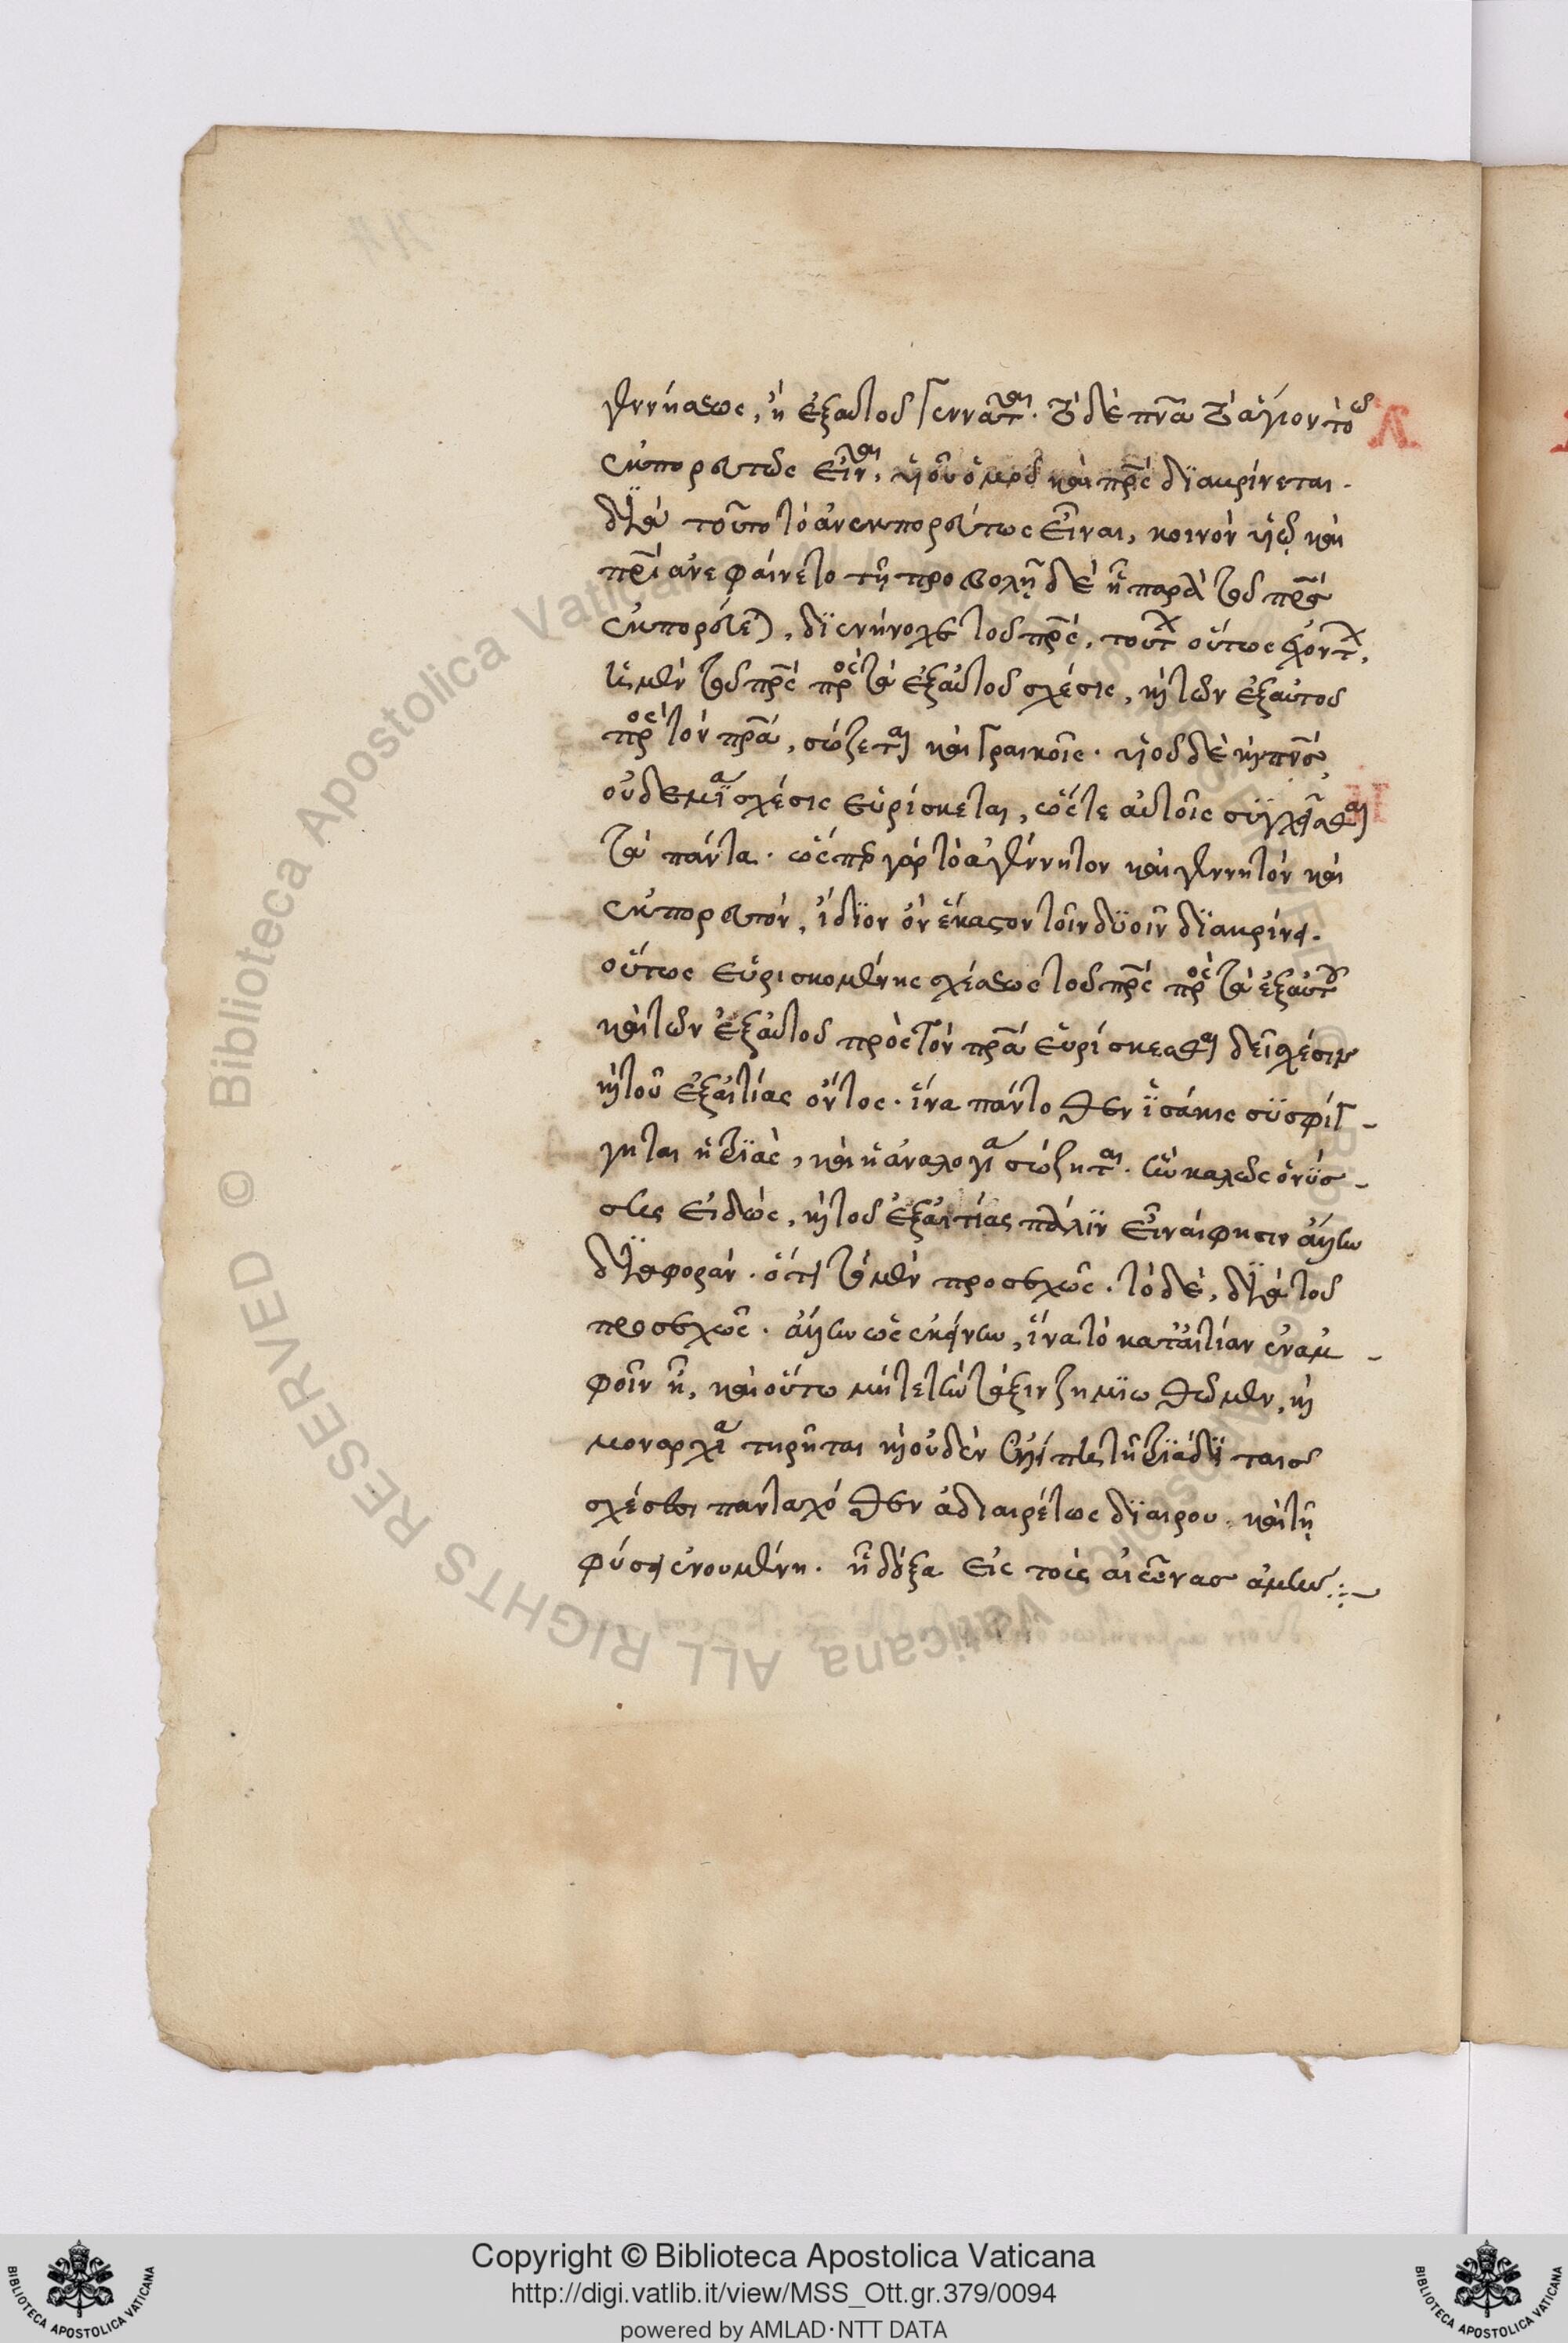 γεννήσεως, ἢ ἐξ αὐτοῦ γεννᾶται. τὸ δὲ πνα τὸ ἅγιον τῷ
ἐκπορευτῶς εἶναι, υἱοῦ ὁμοῦ καὶ πρς διακρίνεται.
διὰ τοῦτο τὸ ἀνεκπορεύτως εἶναι, κοινὸν υἱῷ καὶ
πρι ἀνεφαίνετο τῇ προβολῇ δὲ ἣ παρὰ τοῦ πρς
ἐκπορεύεται, διενήνοχε τοῦ πρς. τούτων οὕτως ἐχόντων,
ἡ μὲν τοῦ πρς πρὸς τὰ ἐξ αὐτοῦ σχέσις, καὶ τῶν ἐξ αὐτοῦ
πρὸς τὸν πρα, σώζεται καὶ γραικοῖς. υἱοῦ δὲ καὶ πνς
οὐδεμία σχέσις εὑρίσκεται, ὥστε αὐτοῖς συγκεχύσθαι
τὰ πάντα. ὥσπερ γὰρ τὸ ἀγέννητον καὶ γεννητὸν καὶ
ἐκπορευτόν, ἴδιον ὂν ἕκαστον τοῖν δυοῖν διακρίνει.
οὕτως εὑρισκομένης σχέσεως τοῦ πρς πρὸς τὰ ἐξ αὐτοῦ
καὶ τῶν ἐξ αὐτοῦ πρὸς τὸν πρα εὑρίσκεσθαι δεῖ σχέσιν
καὶ τοῦ ἐξ αἰτίας ὄντος. ἵνα πάντοθεν ἰσάκις συσφίγ-
γηται ἡ τριὰς, καὶ ἡ ἀναλογία σώζηται.
εἰδώς, καὶ τοῦ ἐξ αἰτίας πάλιν εἶναι φησιν ἄλλην
διαφοράν. ὅτι τὸ μὲν προσεχῶς. τὸ δὲ, διὰ τοῦ
προσεχῶς. ἵνα τὸ κατ' αἰτίαν ἐν ἀμ-
φοῖν ᾖ, καὶ οὕτω μήτε τὴν τάξιν ζημιωθῶμεν, καὶ
μοναρχία τηρῆται καὶ οὐδὲν τῇ τριάδι ταῖς
σχέσεσι πανταχόθεν ἀδιαιρέτως διαιρου. καὶ τῇ
φύσει ἑνουμένη. ᾗ δόξα εἰς τοὺς αἰῶνας ἀμήν:~
Copyright © Biblioteca Apostolica Vaticana
http://digi.vatlib.it/view/MSS_Ott.gr.379/0094
powered by AMLAD·NTT DATA